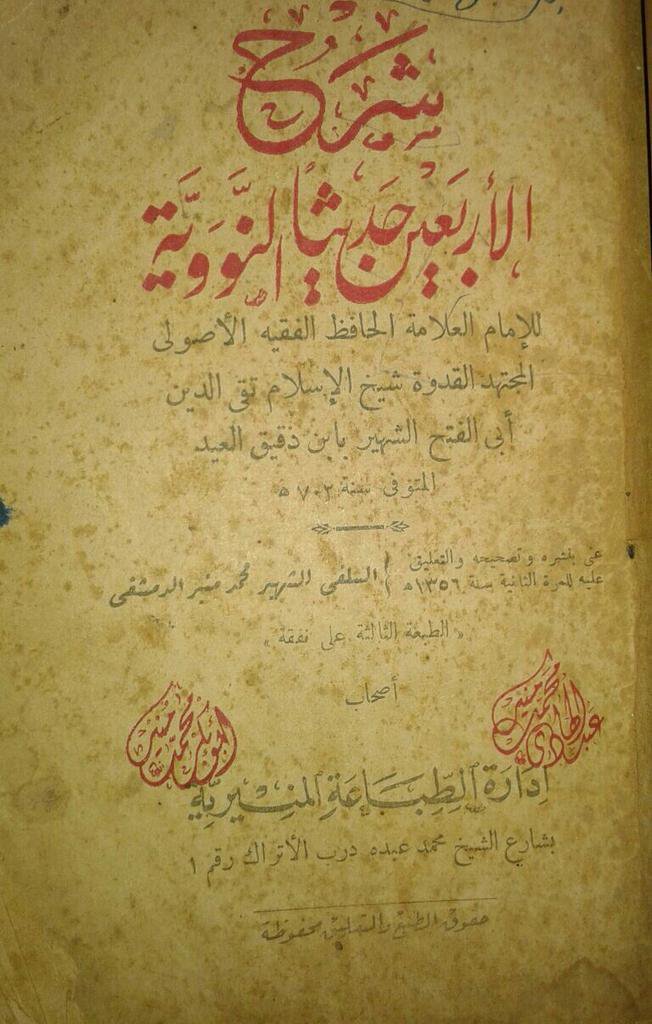 شرح
الأربعين حديثا النَّوَوَيَّة
للإمام العلامة الحافظ الفقيه الأصولى
المجتهد القدوة شيخ الإسلام تقى الدين
أبى الفتح الشهير بابن دقيق العيد
المتوفى سنة ٧٠٢ ه
عنى بنشره وتصحيحه والتعليق
عليه للمرة الثانية سنة ١٣٥٦ه ) السلفى الشهير محمد منير الدمشقى
« الطبعة الثالثة على نفقة »
أصحاب
عبد الهادي محمد منير
أبو بكر محمد منير
إِدَارَة الطِّبَاعَةِ المنِيرِيَّة
بشارع الشيخ محمد عبده درب الأتراك رقم ١
حقوق الطبع والتعليق محفوظة